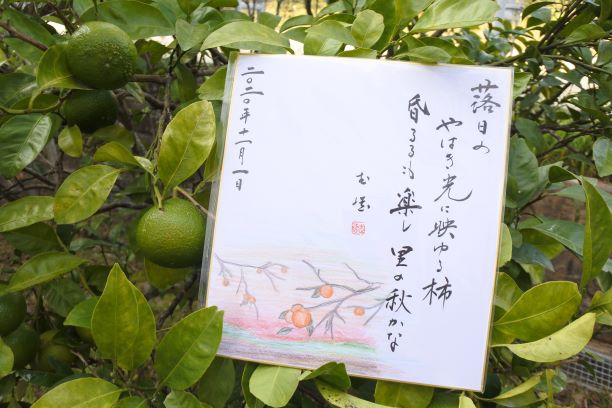 落日の
やはき光に映ゆる柿
昏るるも楽し里の秋かな
二〇二〇年十一月一日